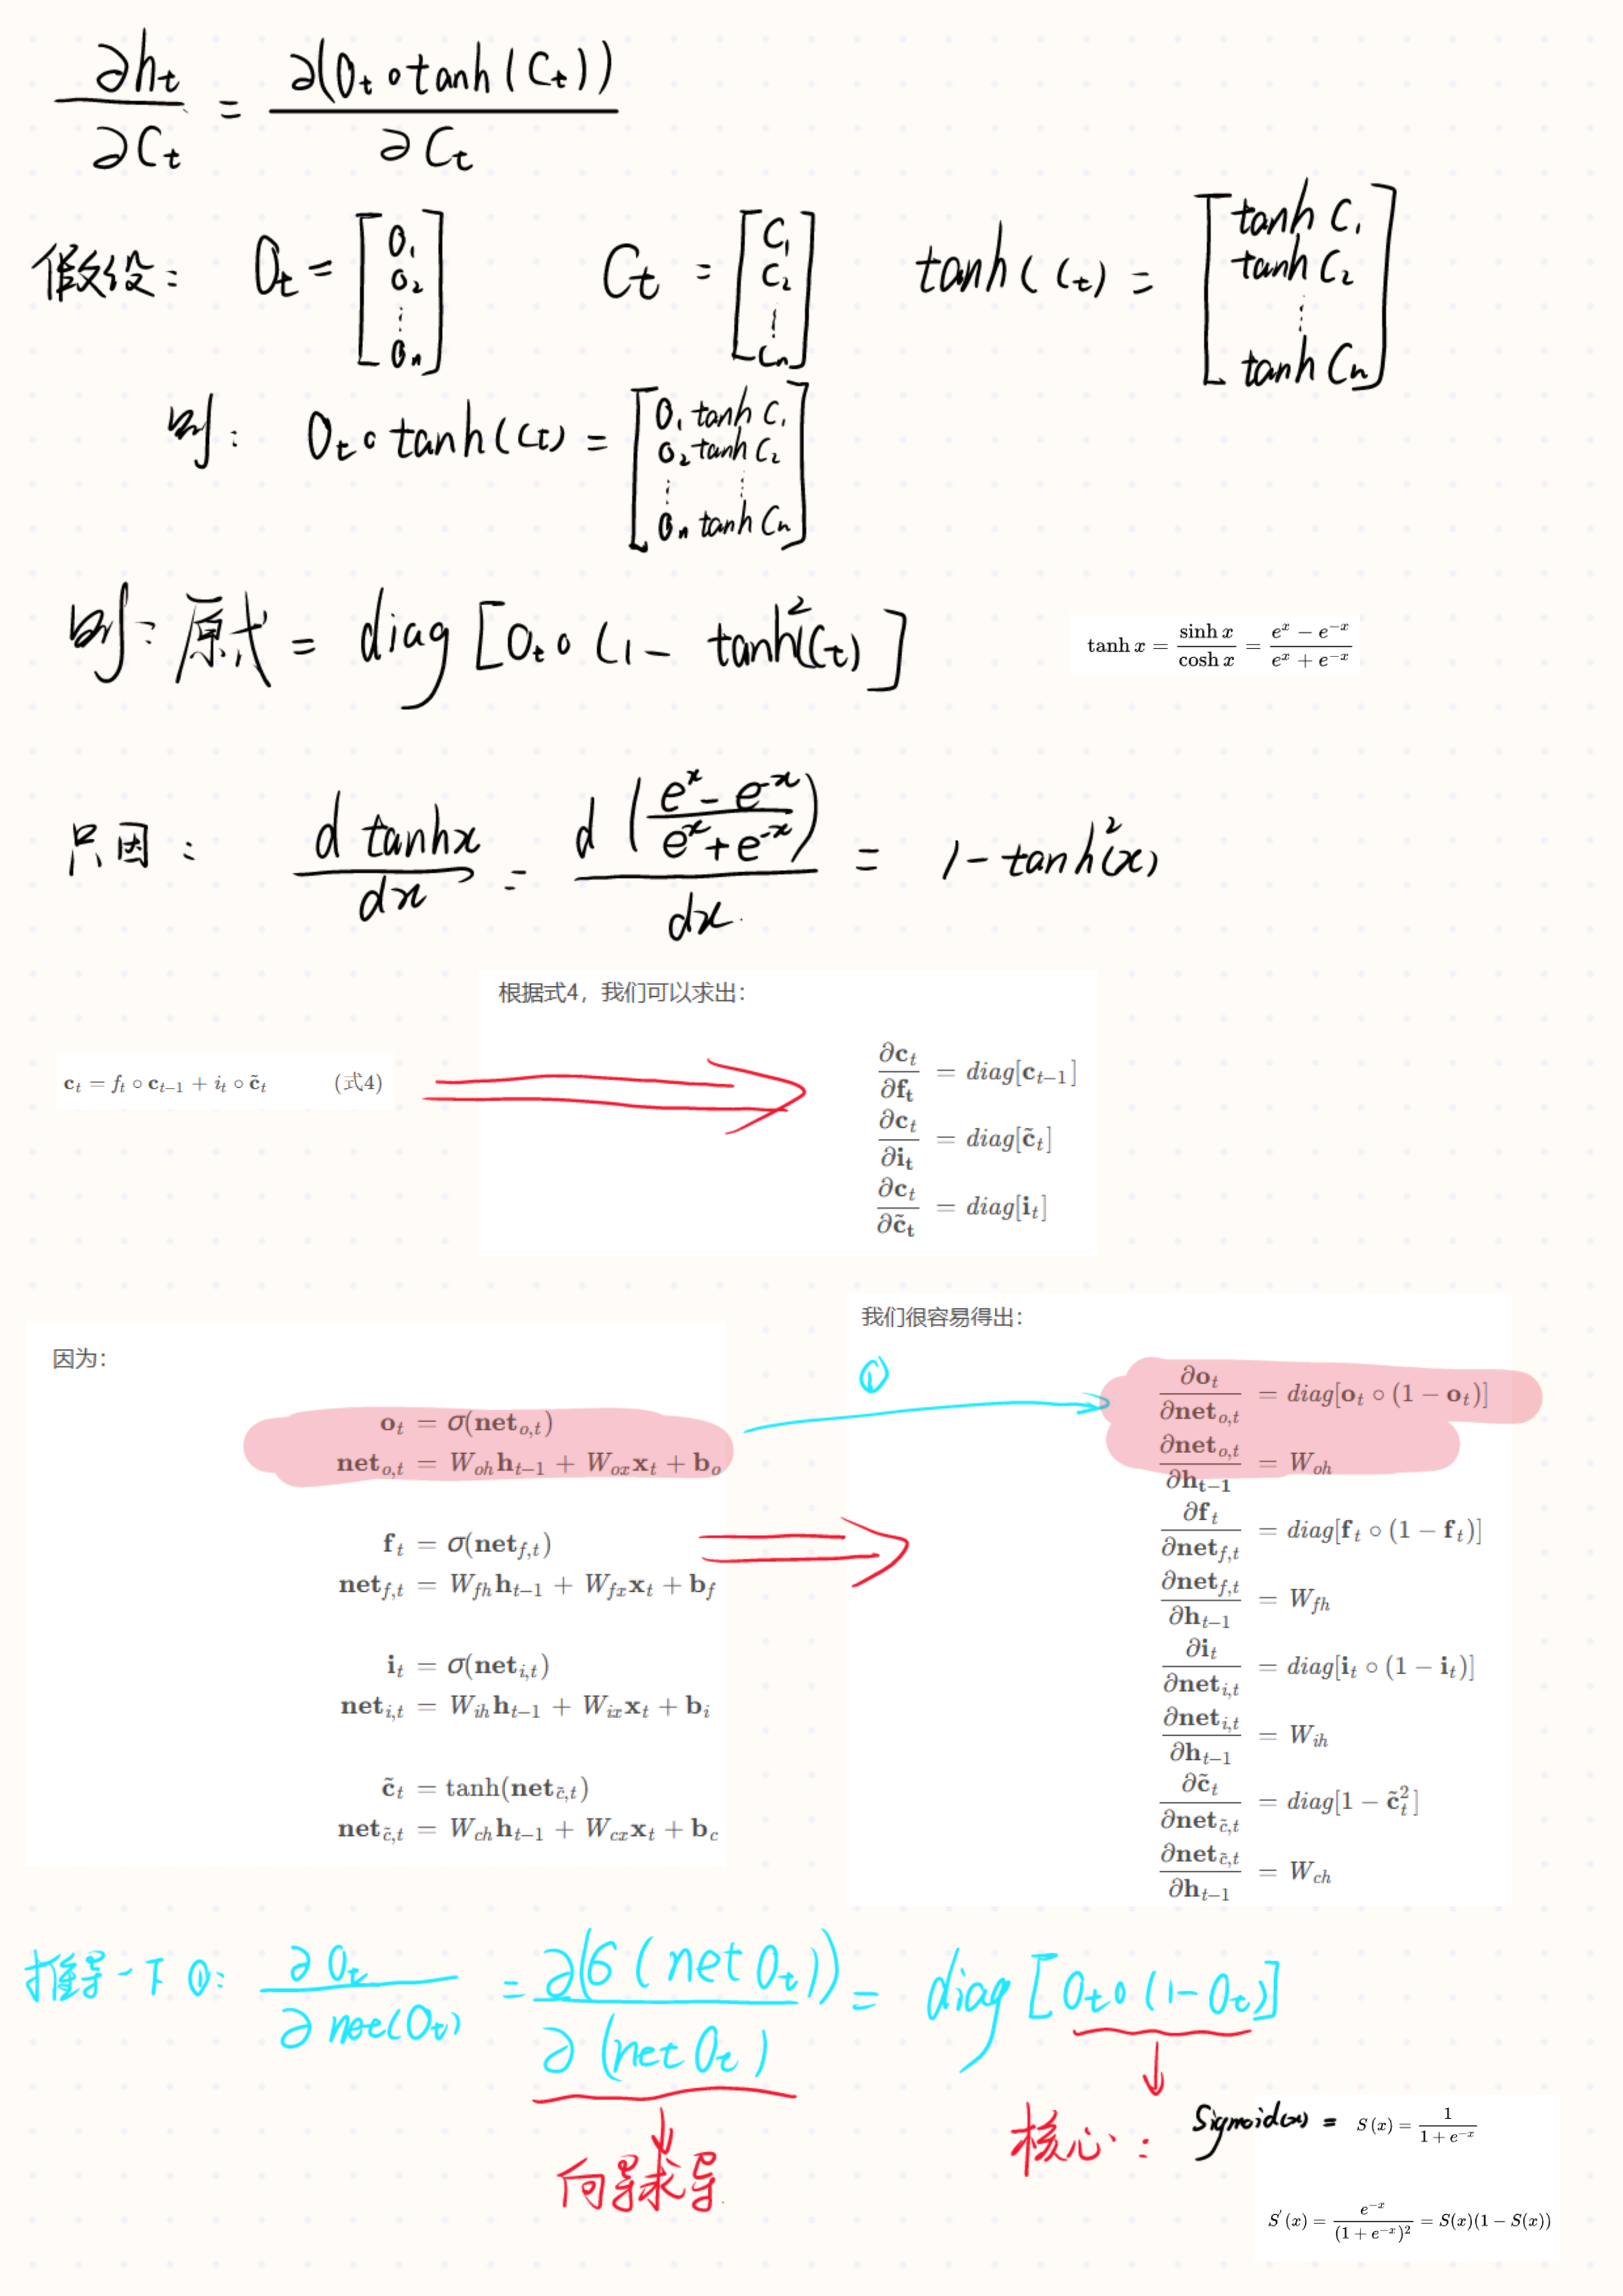 ∂hₜ/∂Cₜ = ∂(Oₜ∘tanh(Cₜ))/∂Cₜ
假设: Oₜ = [O₁ O₂ ⋮ Oₙ] Cₜ = [C₁ C₂ ⋮ Cₙ] tanh(Cₜ) = [tanh C₁ tanh C₂ ⋮ tanh Cₙ]
则: Oₜ∘tanh(Cₜ) = [O₁ tanh C₁ O₂ tanh C₂ ⋮ ⋮ Oₙ tanh Cₙ]
则: 原式 = diag[Oₜ∘(1 - tanh²(Cₜ)]
tanh x = sinh x/cosh x = (eˣ − e⁻ˣ)/(eˣ + e⁻ˣ)
只因: d tanhx/dx = d((eˣ - e⁻ˣ)/(eˣ + e⁻ˣ))/dx = 1 - tanh²(x)
根据式4，我们可以求出：
cₜ = fₜ ∘ cₜ₋₁ + iₜ ∘ c̃ₜ (式4)
∂cₜ/∂fₜ = diag[cₜ₋₁]
∂cₜ/∂iₜ = diag[c̃ₜ]
∂cₜ/∂c̃ₜ = diag[iₜ]
因为：
oₜ = σ(net_{o,t})
net_{o,t} = W_{oh}hₜ₋₁ + W_{ox}xₜ + b_o
fₜ = σ(net_{f,t})
net_{f,t} = W_{fh}hₜ₋₁ + W_{fx}xₜ + b_f
iₜ = σ(net_{i,t})
net_{i,t} = W_{ih}hₜ₋₁ + W_{ix}xₜ + b_i
c̃ₜ = tanh(net_{c̃,t})
net_{c̃,t} = W_{ch}hₜ₋₁ + W_{cx}xₜ + b_c
我们很容易得出：
①
∂oₜ/∂net_{o,t} = diag[oₜ ∘ (1 − oₜ)]
∂net_{o,t}/∂hₜ₋₁ = W_{oh}
∂fₜ/∂net_{f,t} = diag[fₜ ∘ (1 − fₜ)]
∂net_{f,t}/∂hₜ₋₁ = W_{fh}
∂iₜ/∂net_{i,t} = diag[iₜ ∘ (1 − iₜ)]
∂net_{i,t}/∂hₜ₋₁ = W_{ih}
∂c̃ₜ/∂net_{c̃,t} = diag[1 − c̃ₜ²]
∂net_{c̃,t}/∂hₜ₋₁ = W_{ch}
推导一下①: ∂Oₜ/∂net(Oₜ) = ∂(σ(net Oₜ))/∂(net Oₜ) = diag[Oₜ∘(1-Oₜ)]
向导求导
核心: Sigmoid(x) = S(x) = 1/(1 + e⁻ˣ)
S′(x) = e⁻ˣ/(1 + e⁻ˣ)² = S(x)(1 − S(x))